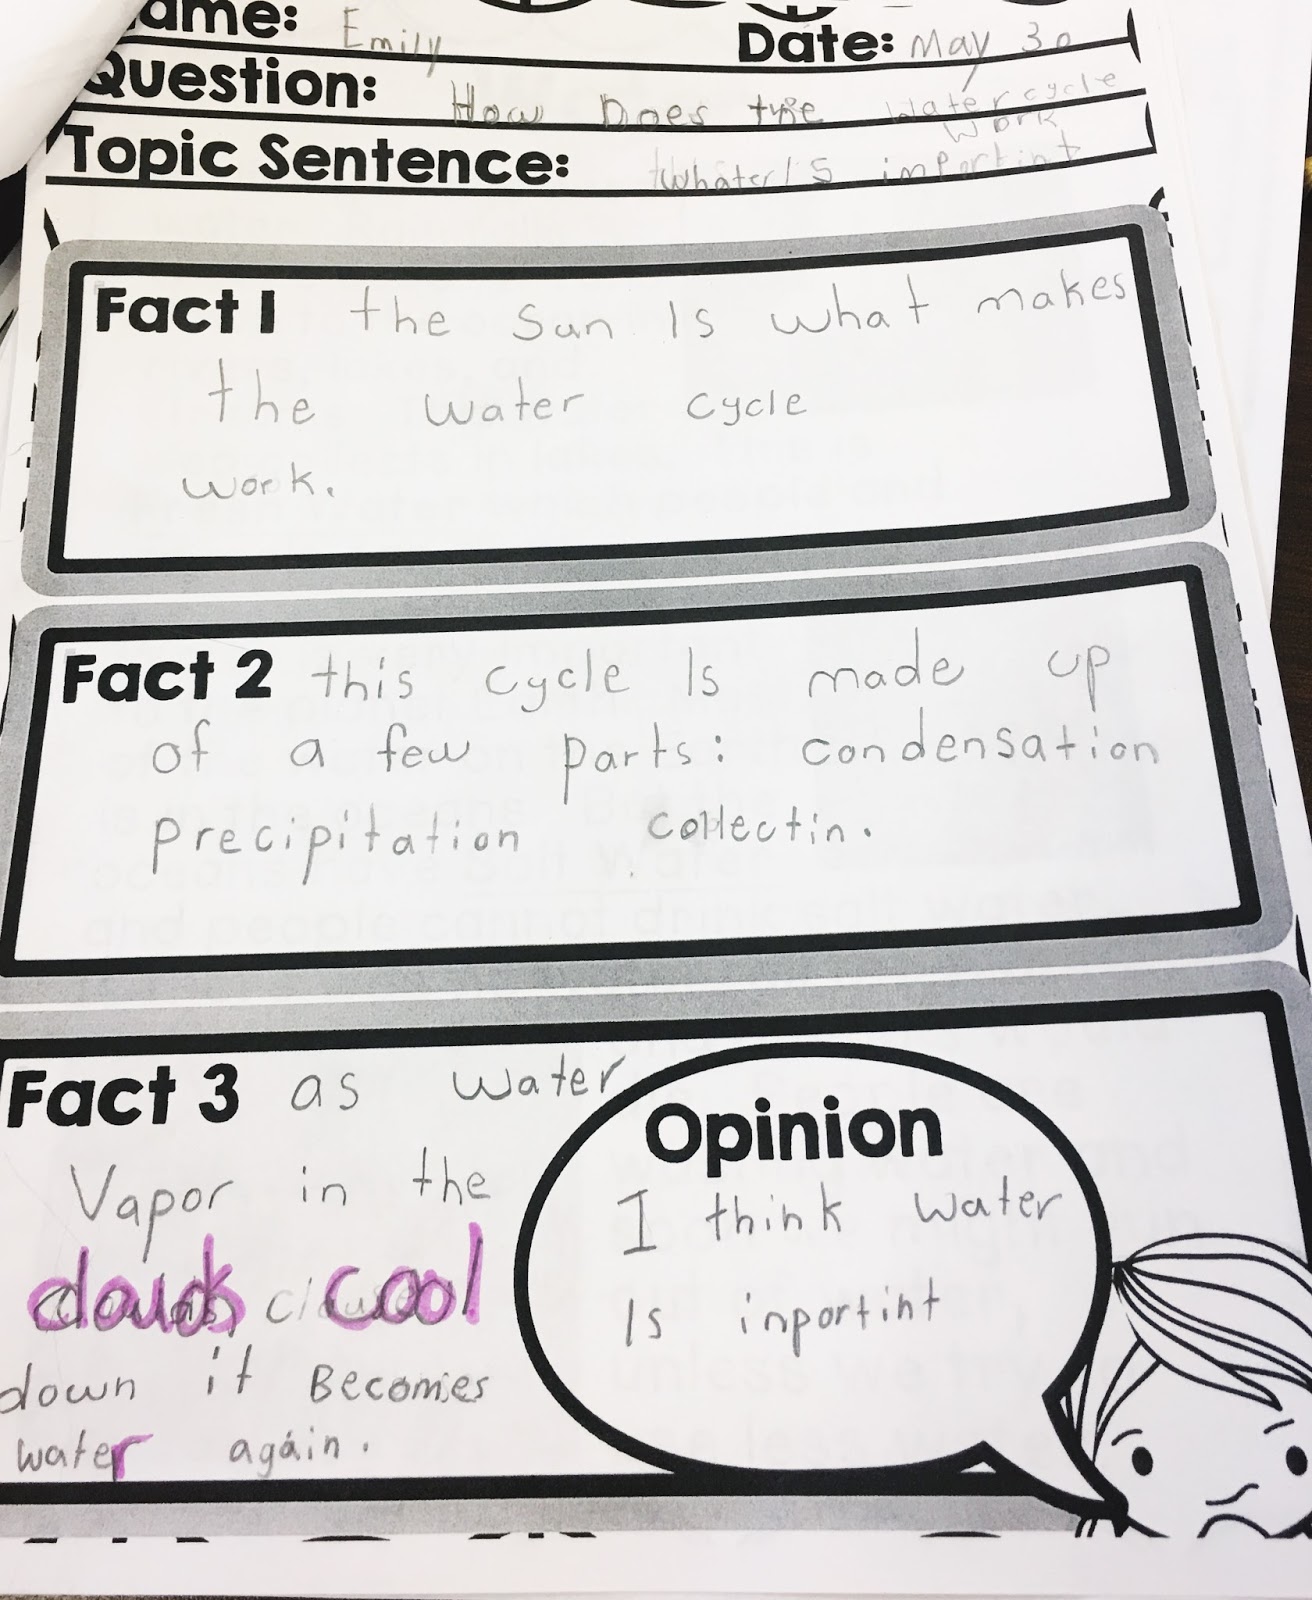 ame: Emily Date: May 30
Question: How Does the water cycle
work
Topic Sentence: Whater is importint
Fact 1 the sun Is what makes
the water cycle
work.
Fact 2 this cycle Is made up
of a few parts: condensation
precipitation collectin.
Fact 3 as water
Vapor in the
clouds cool
down it Becomes
water again.
Opinion
I think water
Is inportint